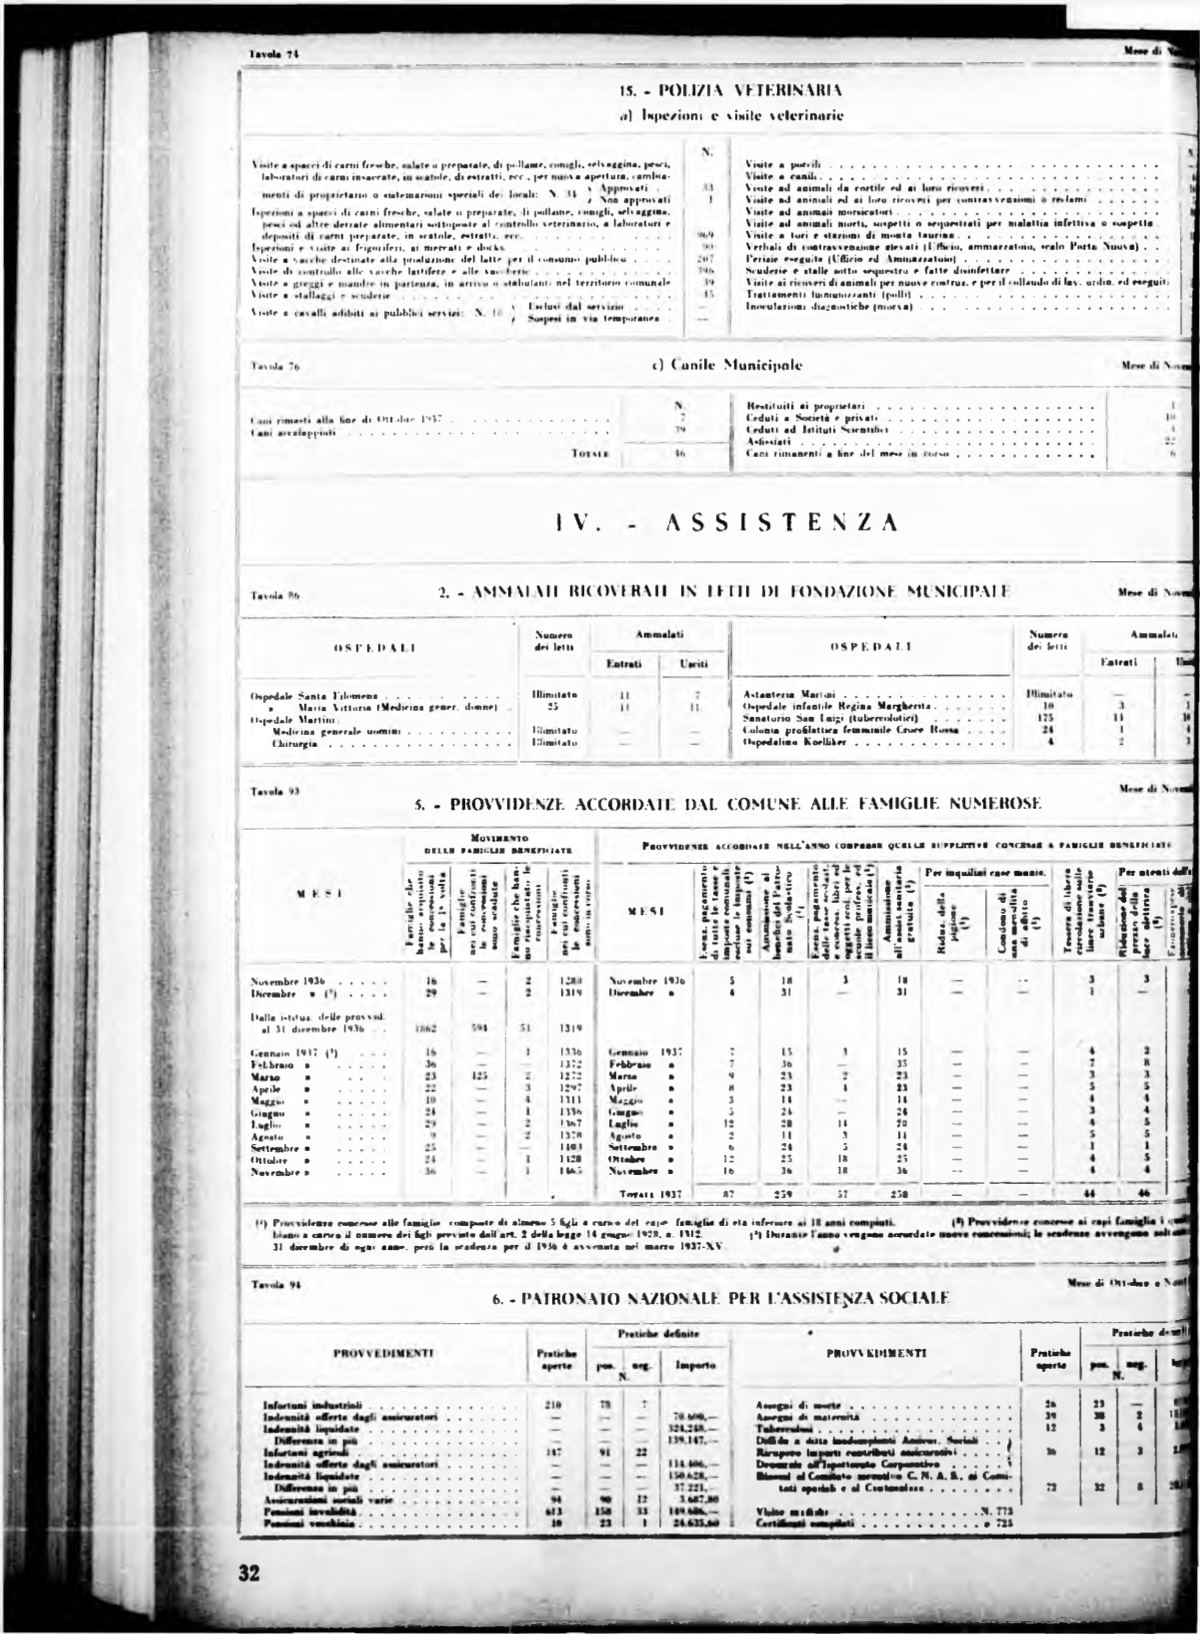 Tavola 74
Mese di
15. - POLIZIA VETERINARIA
a) Ispezioni e visite veterinarie
N.
Visite a spacci di carni fresche, salate o preparate, di pollame, conigli, selvaggina, pesci,
laboratori di carni insaccate, in scatole, di estratti, ecc., per nuova apertura, cambia-
menti di proprietario o sistemazioni speciali dei locali: N. 34 Approvati . 33
Non approvati 1
Ispezioni a spacci di carni fresche, salate o preparate, di pollame, conigli, selvaggina,
pesci ed altre derrate alimentari sottoposte al controllo veterinario, a laboratori e
depositi di carni preparate, in scatole, estratti, ecc. 969
Ispezioni e visite ai frigoriferi, ai mercati e docks 90
Visite a vacche destinate alla produzione del latte per il consumo pubblico 207
Visite di controllo alle vacche lattifere e alle vaccherie 396
Visite a greggi e mandre in partenza, in arrivo o stabulanti nel territorio comunale 39
Visite a stallaggi e scuderie 45
Visite a cavalli adibiti ai pubblici servizi: N. Esclusi dal servizio —
Sospesi in via temporanea —
Visite a porcili
Visite a canili
Visite ad animali da cortile ed ai loro ricoveri
Visite ad animali ed ai loro ricoveri per contravvenzioni o reclami
Visite ad animali morsicatori
Visite ad animali morti, sospetti o sequestrati per malattia infettiva o sospetta
Visite a tori e stazioni di monta taurina
Verbali di contravvenzione elevati (Ufficio, ammazzatoio, scalo Porta Nuova)
Perizie eseguite (Ufficio ed Ammazzatoio)
Scuderie e stalle sotto sequestro e fatte disinfettare
Visite ai ricoveri di animali per nuove costruz. e per il collaudo di lav. ordin. ed eseguiti
Trattamenti immunizzanti (polli)
Inoculazioni diagnostiche (morva)
Tavola 76
c) Canile Municipale
Mese di
N.
Cani rimasti alla fine di Ottobre 1937 7
Cani accalappiati 39
TOTALE 46
Restituiti ai proprietari
Ceduti a Società e privati
Ceduti ad Istituti Scientifici
Asfissiati
Cani rimanenti a fine del mese in corso 6
IV. - ASSISTENZA
Tavola 86
2. - AMMALATI RICOVERATI IN LETTI DI FONDAZIONE MUNICIPALE
Mese di
OSPEDALI Numero dei letti Ammalati Entrati Usciti
OSPEDALI Numero dei letti Ammalati Entrati
Ospedale Santa Filomena Illimitato 11 7
» Maria Vittoria (Medicina gener. donne) 25 11 11
Ospedale Martini:
Medicina generale uomini Illimitato — —
Chirurgia Illimitato — —
Astanteria Martini Illimitato — —
Ospedale infantile Regina Margherita 10 3
Sanatorio San Luigi (tubercolotici) 175 11
Colonia profilattica femminile Croce Rossa 24 1
Ospedalino Koelliker 4 2
Tavola 93
Mese di
5. - PROVVIDENZE ACCORDATE DAL COMUNE ALLE FAMIGLIE NUMEROSE
MESI
MOVIMENTO
DELLE FAMIGLIE BENEFICIATE
Famiglie che hanno acquisito le concessioni per la 1ª volta
Famiglie nei cui confronti le concessioni sono scadute
Famiglie che hanno riacquistato le concessioni
Famiglie nei cui confronti le concessioni sono in corso
Novembre 1936 16 — 2 1288
Dicembre » (³) 29 — 2 1319
Dalla istituz. delle provvid.
al 31 dicembre 1936 1862 594 51 1319
Gennaio 1937 (³) 16 — 1 1336
Febbraio » 36 — — 1372
Marzo » 23 125 2 1272
Aprile » 22 — 3 1297
Maggio » 10 — 4 1311
Giugno » 24 — 1 1336
Luglio » 29 — 2 1367
Agosto » 9 — 2 1378
Settembre » 25 — — 1403
Ottobre » 24 — 1 1428
Novembre » 36 — 1 1465
PROVVIDENZE ACCORDATE NELL'ANNO COMPRESE QUELLE SUPPLETIVE CONCESSE A FAMIGLIE BENEFICIATE
MESI
Esenz. pagamento di tutte le tasse e imposte comunali, escluse le imposte sui consumi (¹)
Ammissione ai benefici del Patronato Scolastico (¹)
Esenz. pagamento delle tasse scolast. e concess. libri ed oggetti scol. per le scuole profess. ed il liceo musicale (¹)
Ammissione all'assist. sanitaria gratuita (¹)
Per inquilini case munic.
Riduz. della pigione (¹)
Condono di una mensilità di affitto (¹)
Tessera di libera circolazione sulle linee tranviarie urbane (²)
Per utenti
Riduzione del prezzo della luce elettrica (²)
Novembre 1936 5 18 3 18 — — 3 3
Dicembre » 4 31 — 31 — — 1 —
Gennaio 1937 7 15 3 15 — — 4 2
Febbraio » 7 36 — 35 — — 7 8
Marzo » 9 23 2 23 — — 3 3
Aprile » 8 23 4 23 — — 5 5
Maggio » 3 14 — 14 — — 4 4
Giugno » 5 24 — 24 — — 3 4
Luglio » 12 28 14 28 — — 4 5
Agosto » 2 11 3 11 — — 5 5
Settembre » 6 24 5 24 — — 1 1
Ottobre » 12 25 18 25 — — 4 5
Novembre » 16 36 18 36 — — 4 4
TOTALE 1937 87 259 57 258 — — 44 46
(¹) Provvidenze concesse alle famiglie composte di almeno 5 figli a carico del capo famiglia di età inferiore ai 18 anni compiuti. (²) Provvidenze concesse ai capi famiglia i quali
biano a carico il numero dei figli previsto dall'art. 2 della legge 14 giugno 1928, n. 1312. (³) Durante l'anno vengono accordate nuove concessioni; le scadenze avvengono soltanto
31 dicembre di ogni anno, però la scadenza per il 1936 è avvenuta nel marzo 1937-XV.
Tavola 94
Mese di Ottobre e
6. - PATRONATO NAZIONALE PER L'ASSISTENZA SOCIALE
PROVVEDIMENTI Pratiche aperte Pratiche definite pos. neg. N. Importo
Infortuni industriali 210 78 7
Indennità offerte dagli assicuratori — — — 70.600,—
Indennità liquidate — — — 324.248,—
Differenza in più — — — 139.147,—
Infortuni agricoli 147 91 22
Indennità offerte dagli assicuratori — — — 114.406,—
Indennità liquidate — — — 150.628,—
Differenza in più — — — 37.221,—
Assicurazioni sociali varie 94 90 12 3.687,80
Pensioni invalidità 613 158 33 149.686,—
Pensioni vecchiaia 10 23 1 24.635,60
PROVVEDIMENTI Pratiche aperte pos. neg. N.
Assegni di morte 26 23 —
Assegni di maternità 39 38 2
Tubercolosi 12 3 4
Diffide a ditte inadempienti Assicur. Sociali
Ricupero importi contributi assicurativi 36 12 3
Denunzie all'Ispettorato Corporativo
Ricorsi al Comitato esecutivo C. N. A. S., ai Comi-
tati speciali e al Contenzioso 72 32 8
Visite mediche N. 773
Certificati compilati » 725
32